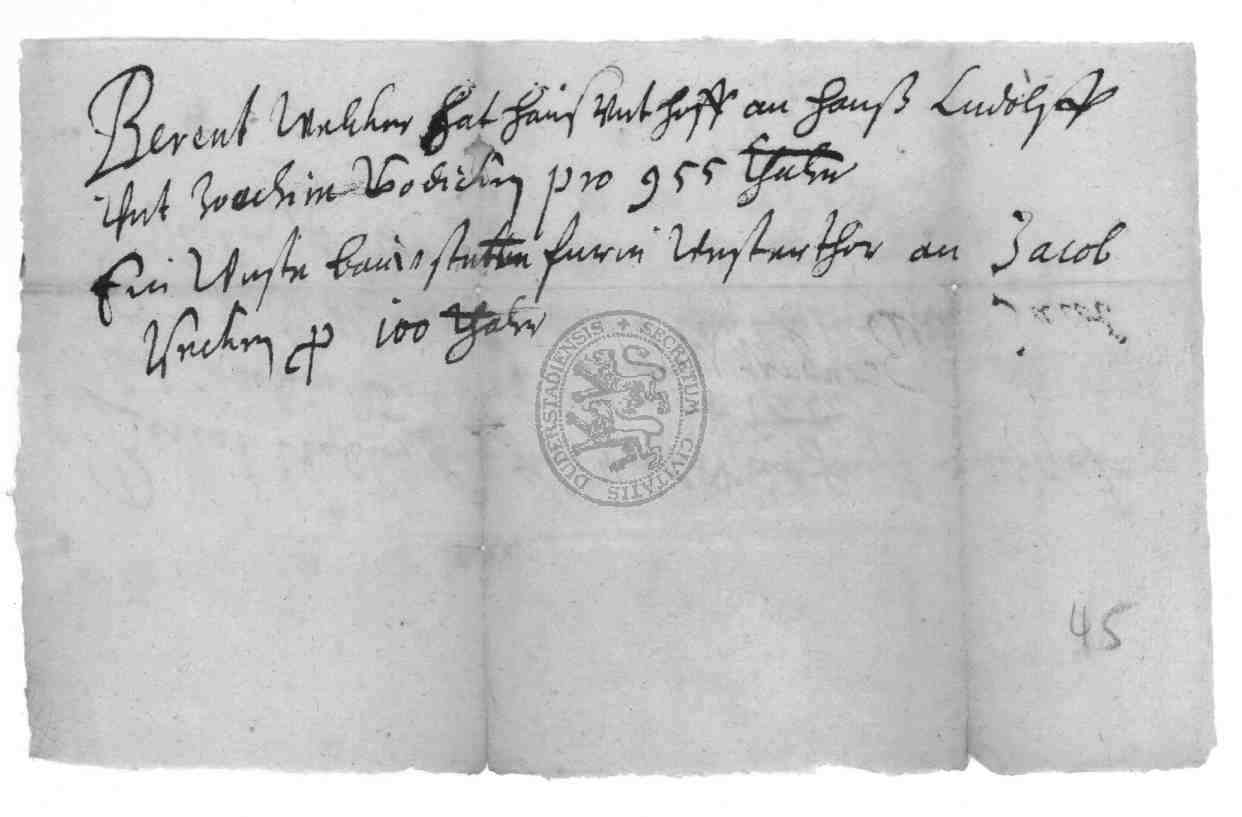 Berent Welcker hat hauß Vnt hoff an Hanß Ludolff
Vnt Jochim Bödicker pro 955 thaler
Ein Wuste bau stetten furm Westerthor an Jacob
100 thaler
SECRETUM CIVITATIS DUDERSTADIENSIS
45